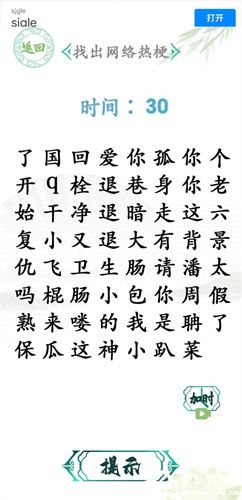 sjgle
siale
打开
退回
找出网络热梗
时间：30
了国回爱你孤你个
开q栓退巷身你老
始干净退暗走这六
复小又退大有背景
仇飞卫生肠请潘太
吗棍肠小包你周假
熟来喽的我是聃了
保瓜这神小趴菜
加时
提示